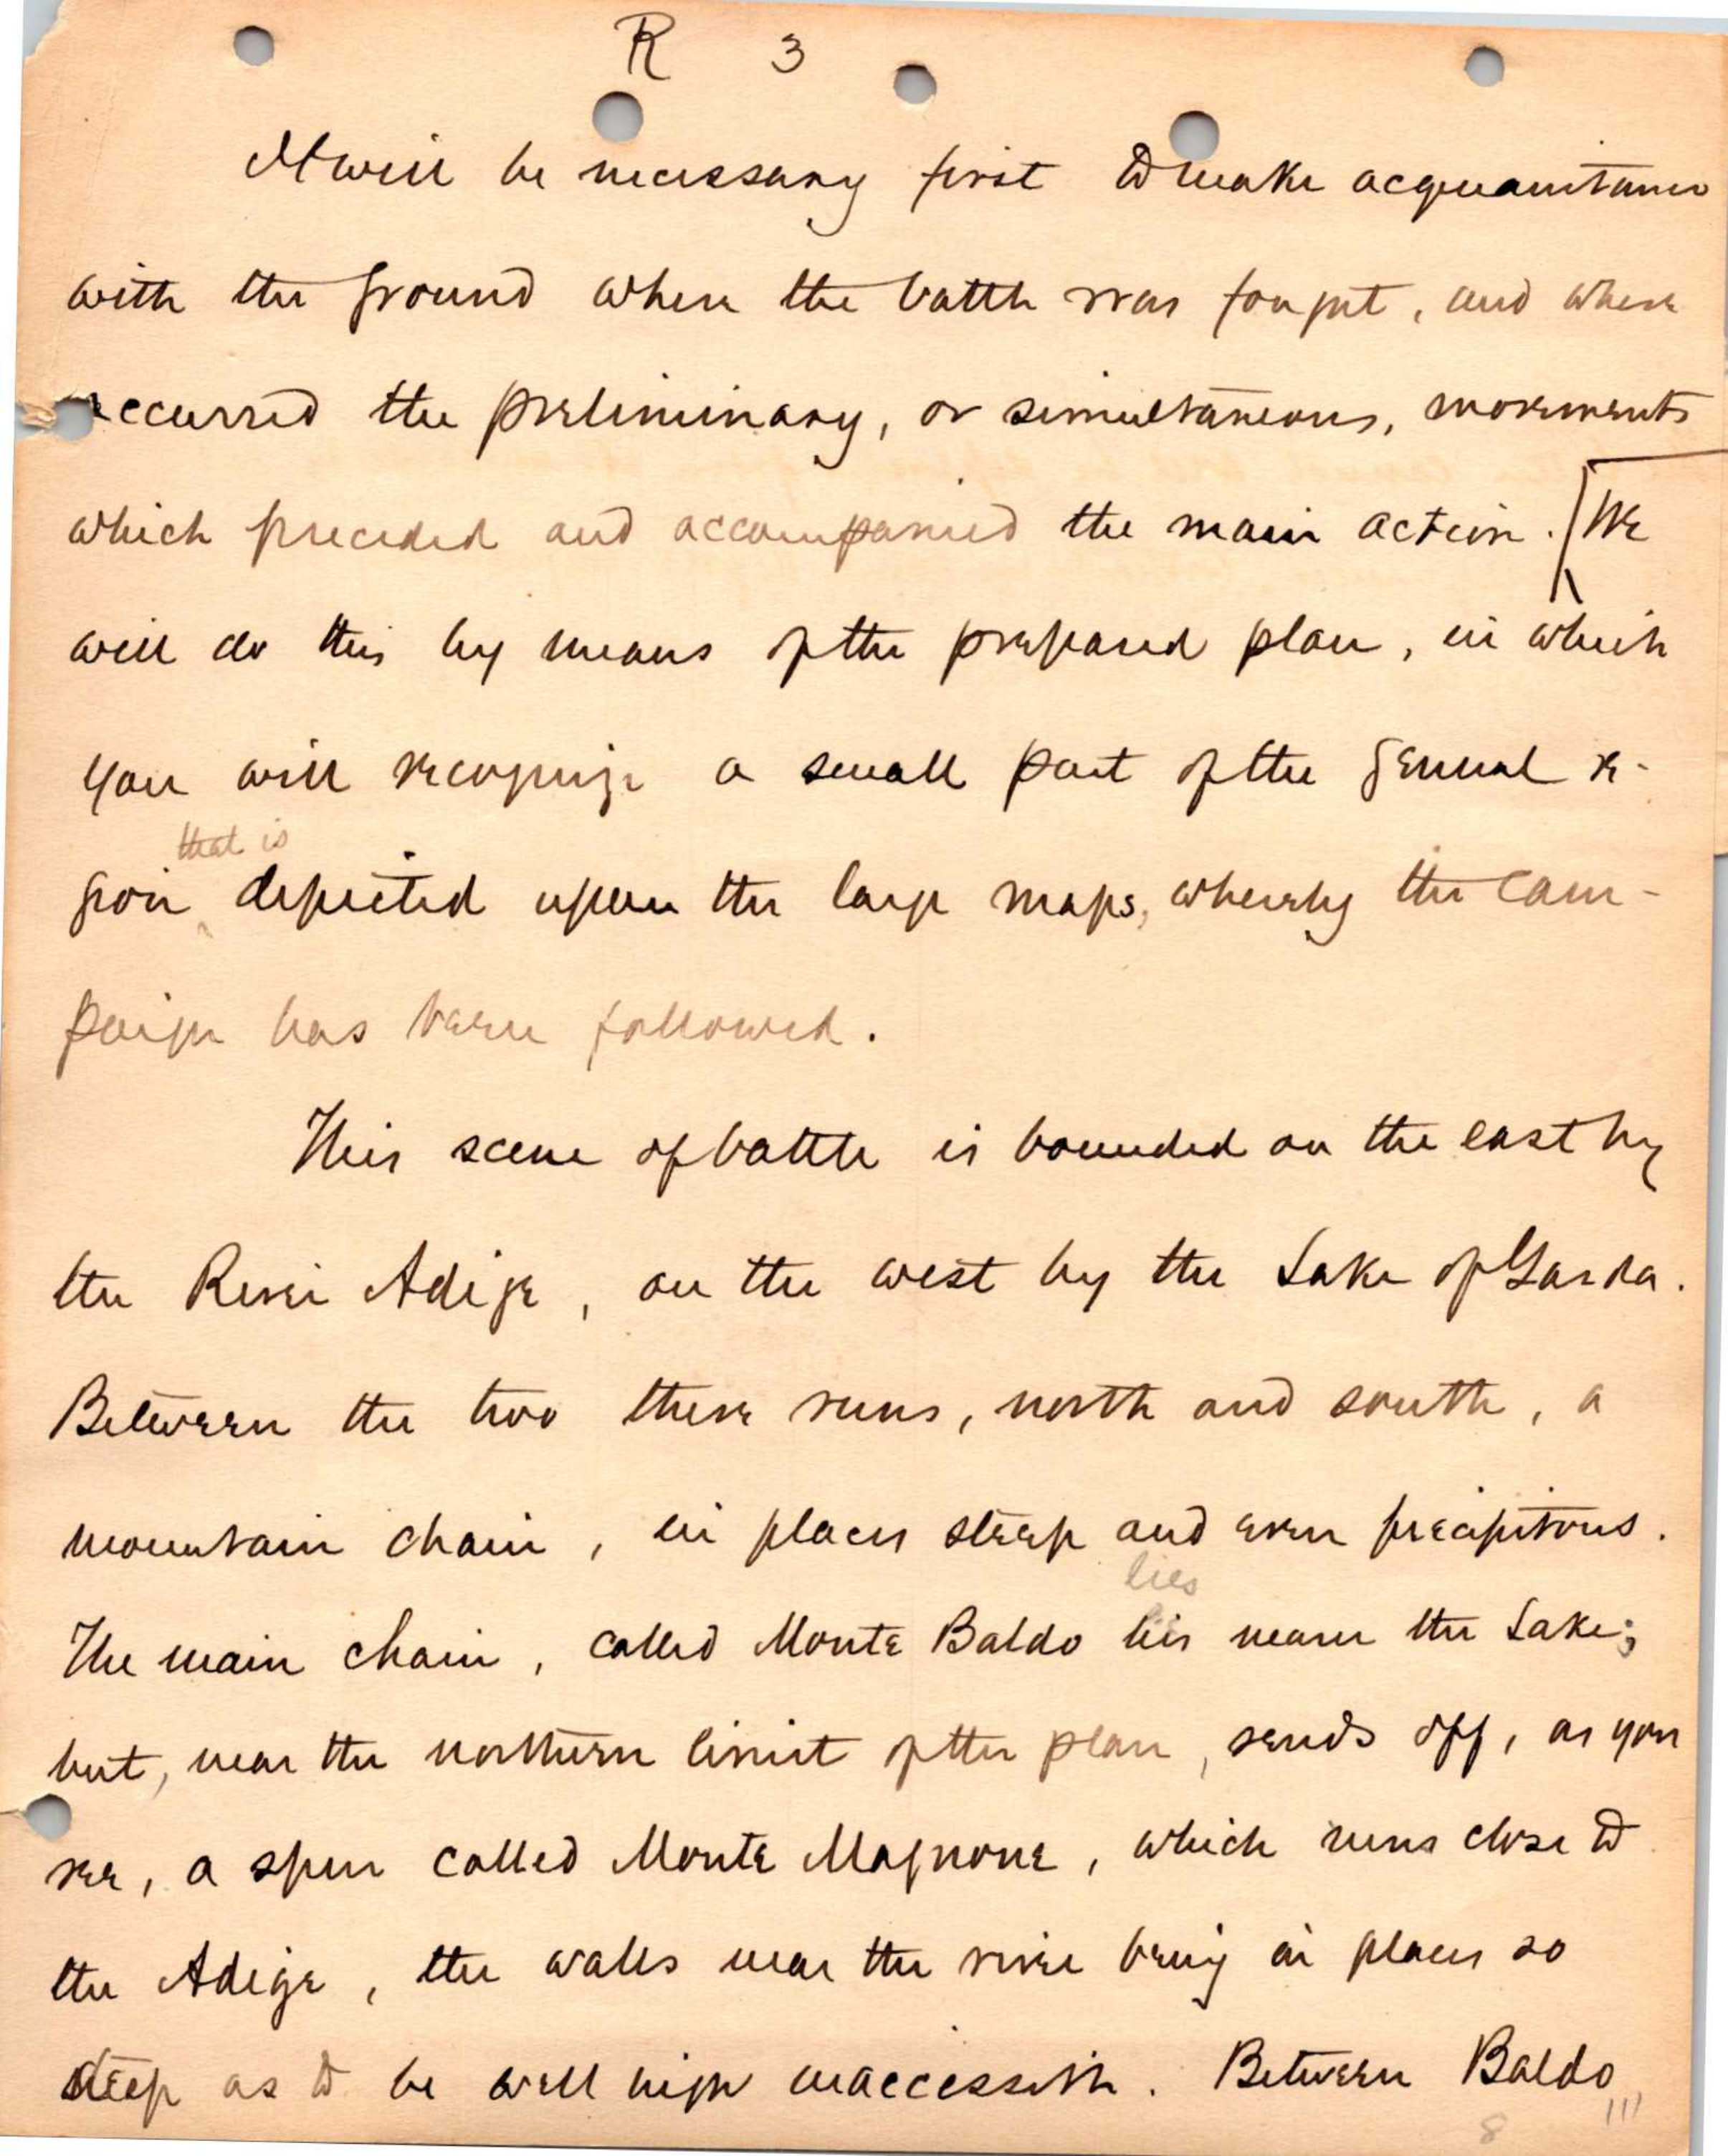 R 3
It will be necessary first to make acquaintance
with the ground where the battle was fought, and where
occurred the preliminary, or simultaneous, movements
which preceded and accompanied the main action. [We
will do this by means of the prepared plan, in which
you will recognize a small part of the general re-
that is
gion depicted upon the large maps, whereby the cam-
paign has been followed.
This scene of battle is bounded on the east by
the River Adige, on the west by the Lake of Garda.
Between the two there runs, north and south, a
mountain chain, in places steep and even precipitous.
lies
The main chain, called Monte Baldo lies nearer the Lake;
but, near the northern limit of the plan, sends off, as you
see, a spur called Monte Magnone, which runs close to
the Adige, the walls near the river being in places so
steep as to be well nigh inaccessible. Between Baldo
8 111